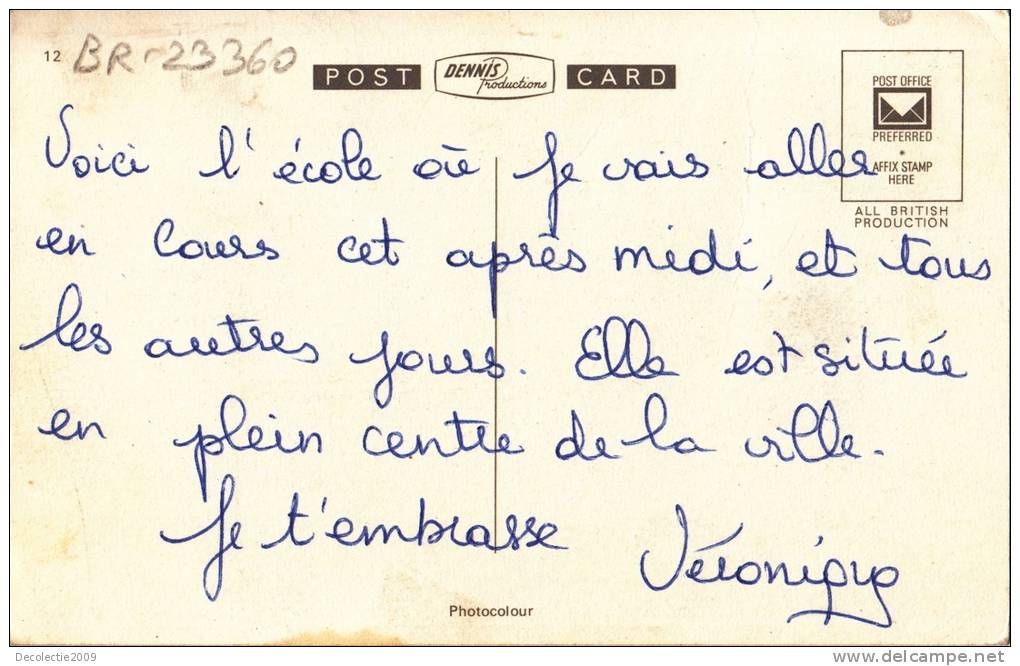 12 BR-23360
POST DENNIS Productions CARD
POST OFFICE
PREFERRED
AFFIX STAMP
HERE
ALL BRITISH
PRODUCTION
Voici l'école où je vais aller
en cours cet après midi, et tous
les autres jours. Elle est située
en plein centre de la ville.
Je t'embrasse
Véronique
Photocolour
Decolectie2009
delcampe.net